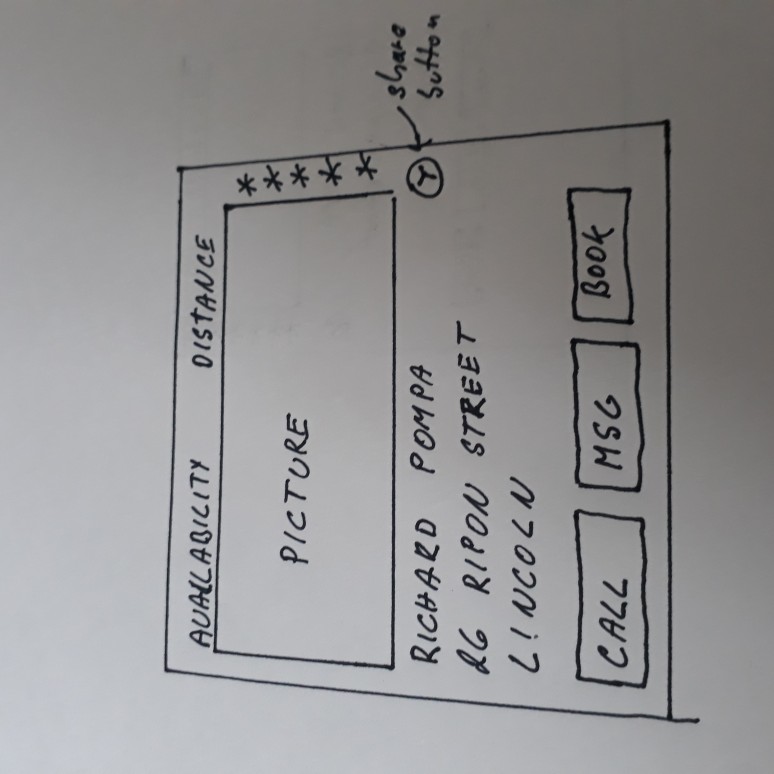 AVAILABILITY DISTANCE
PICTURE
*****
share
button
RICHARD POMPA
26 RIPON STREET
LINCOLN
CALL MSG BOOK